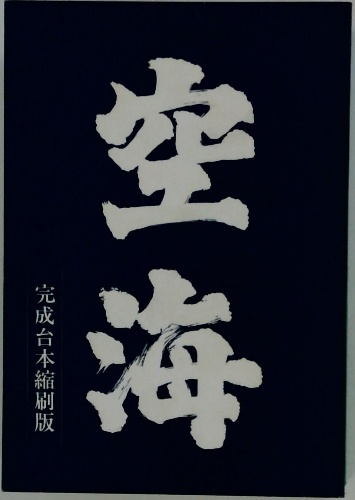 空海
完成台本縮刷版